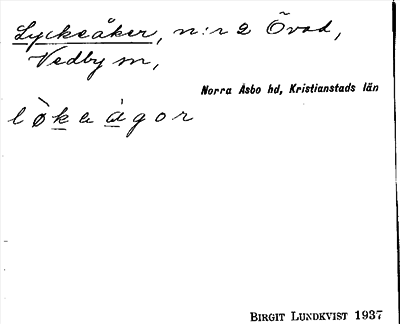 Lyckeåker, n:r 2 Övad,
Vedby sn,
Norra Åsbo hd, Kristianstads län
BIRGIT LUNDKVIST 1937